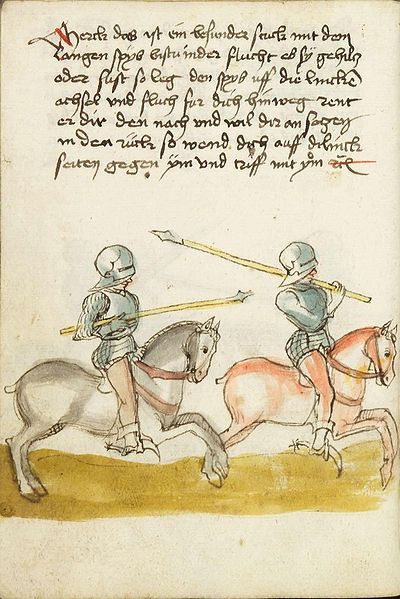 Merck das ist ein besunder stuck mit dem
langen spÿs bistu in der flucht es sÿ gehultz
oder sust so leg den spÿs uff die lincken
achsel und fluch fur dich hinweg rent
er dir den nach und wil dir an setzen
in den rück so wend dich auff di linck
seiten gegen ÿm und triff mit ÿm